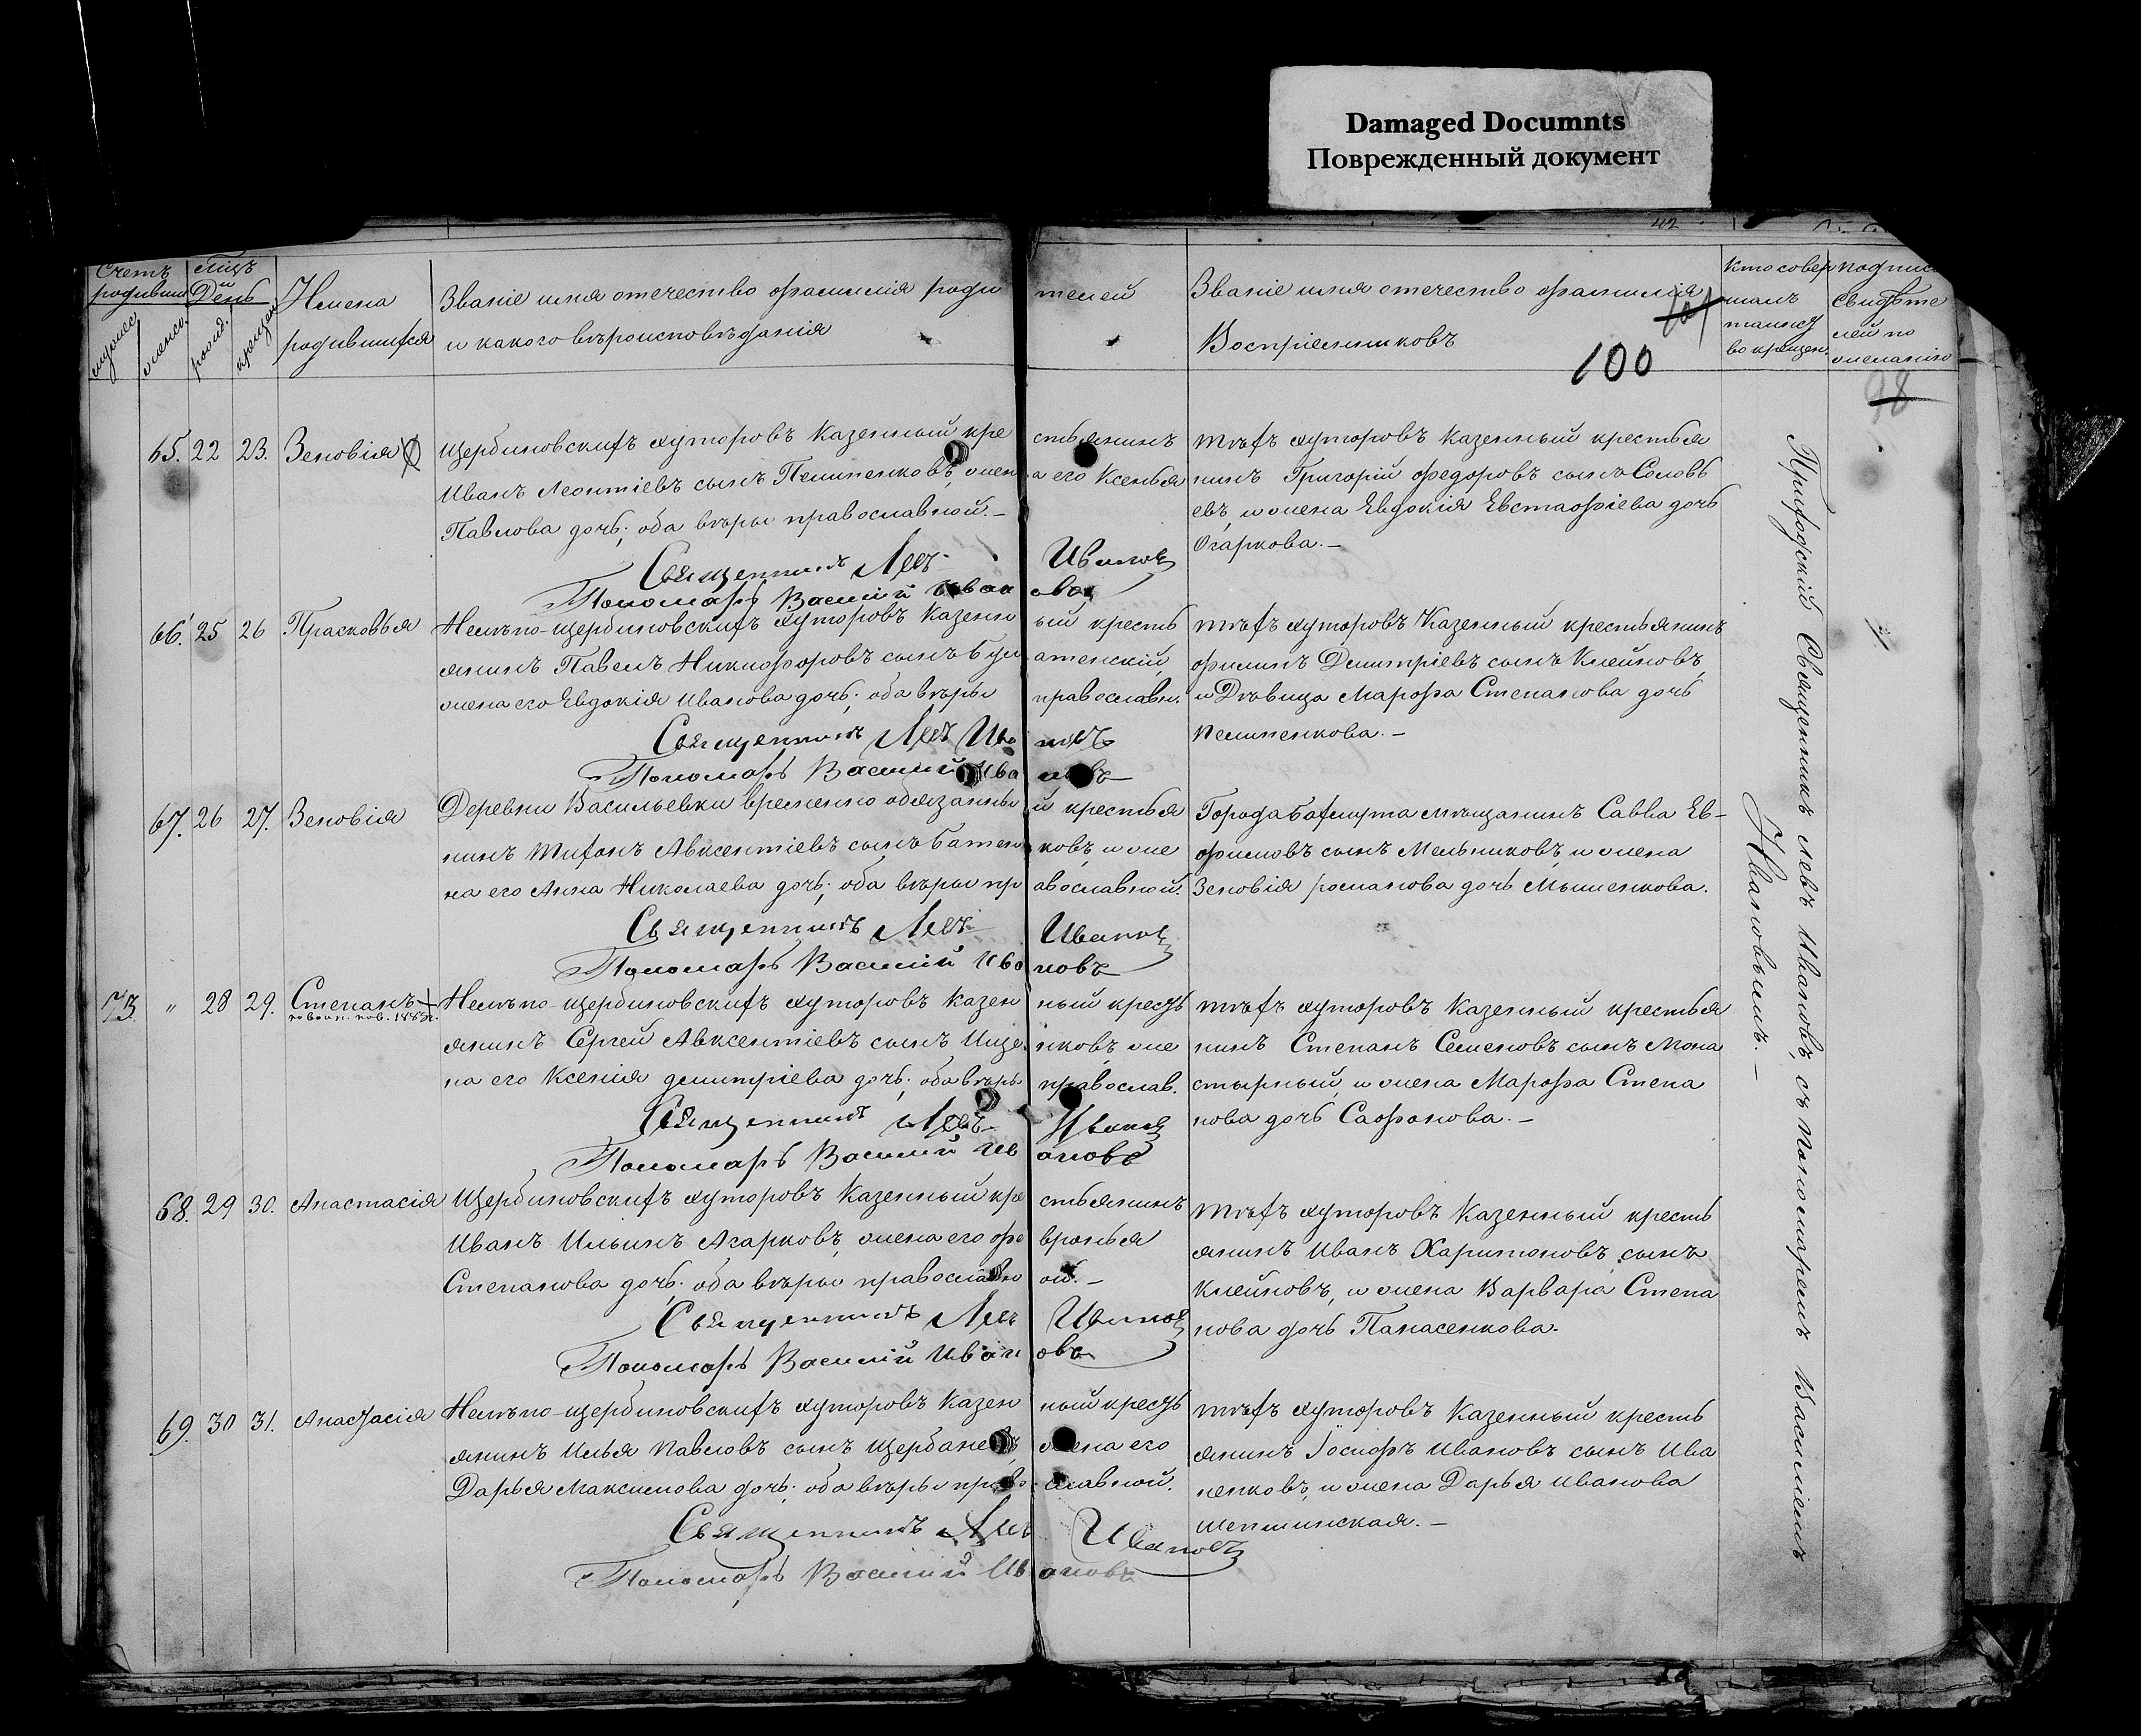 Damaged Documnts
Поврежденный документ
Счетъ родивш. мужес. женск.
Мѣсць и День рожд. крещен.
Имена родившихся
Званіе имя отечество фамилія родителей
и какого вѣроисповѣданія
Званіе имя отечество фамилія
Воспріемниковъ
101
100
42
Кто совер
шалъ
таинст
во крещен.
подпись
свидѣте
лей по
желанію
98
65. 22 23. Зеновія
Щербиновскихъ хуторовъ Казенный крестьянинъ
Иванъ Леонтіевъ сынъ Пелипенковъ, жена его Ксенья
Павлова дочь; оба вѣры православной.–
Священникъ Левъ Ивановъ
Пономарь Василій Ивановъ
тѣхъ хуторовъ Казенный крестья
нинъ Григорій Федоровъ сынъ Соловь
евъ, и жена Евдокія Евстафіева дочь
Огаркова.–
66. 25 26 Прасковья
Нелѣпо-щербиновскихъ хуторовъ Казенный кресть
янинъ Павелъ Никифоровъ сынъ Булатенскій,
жена его Евдокія Иванова дочь; оба вѣры православн.
Священникъ Левъ Ивановъ
Пономарь Василій Ивановъ
тѣхъ хуторовъ Казенный крестьянинъ
Филипъ Дмитріевъ сынъ Клейновъ,
и Дѣвица Марфа Степанова дочь
Пелипенкова.–
67. 26 27. Зеновія
Деревни Васильевки временно обязанный крестья
нинъ Тифонъ Авксентіевъ сынъ Батенковъ, и же
на его Анна Николаева дочь; оба вѣры православной.
Священникъ Левъ Ивановъ
Пономарь Василій Ивановъ
Города Бахмута мѣщанинъ Савва Ев-
фимовъ сынъ Мельниковъ, и жена
Зеновія романова дочь Мышенкова.
73. " 28 29. Степанъ
по воин. пов. 1883г.
Нелѣпо-щербиновскихъ хуторовъ Казенный кресть
янинъ Сергей Авксентіевъ сынъ Ищенковъ же
на его Ксенія дмитріева дочь; оба вѣры православ.
Священникъ Левъ Ивановъ
Пономарь Василій Ивановъ
тѣхъ хуторовъ Казенный крестья
нинъ Степанъ Семеновъ сынъ Мона
стырный, и жена Марфа Степа
нова дочь Сафонова.–
68. 29 30. Анастасія
Щербиновскихъ хуторовъ Казенный крестьянинъ
Иванъ Ильинъ Агарковъ, жена его февронья
Степанова дочь; оба вѣры православной.–
Священникъ Левъ Ивановъ
Пономарь Василій Ивановъ
тѣхъ хуторовъ Казенный кресть
янинъ Иванъ Харитоновъ сынъ
Клейновъ, и жена Варвара Степа
нова дочь Панасенкова.
69. 30 31. Анастасія
Нелѣпо-щербиновскихъ хуторовъ Казенный кресть
янинъ Илья Павловъ сынъ жена его
Дарья Максимова дочь; оба вѣры православной.
Священникъ Левъ Ивановъ
Пономарь Василій Ивановъ
тѣхъ хуторовъ Казенный кресть
янинъ Іосифъ Ивановъ сынъ Ива
ненковъ, и жена Дарья Иванова
Шепшинская.–
Приходскій Священникъ Левъ Ивановъ, съ Пономаремъ Василіемъ
Ивановымъ.–